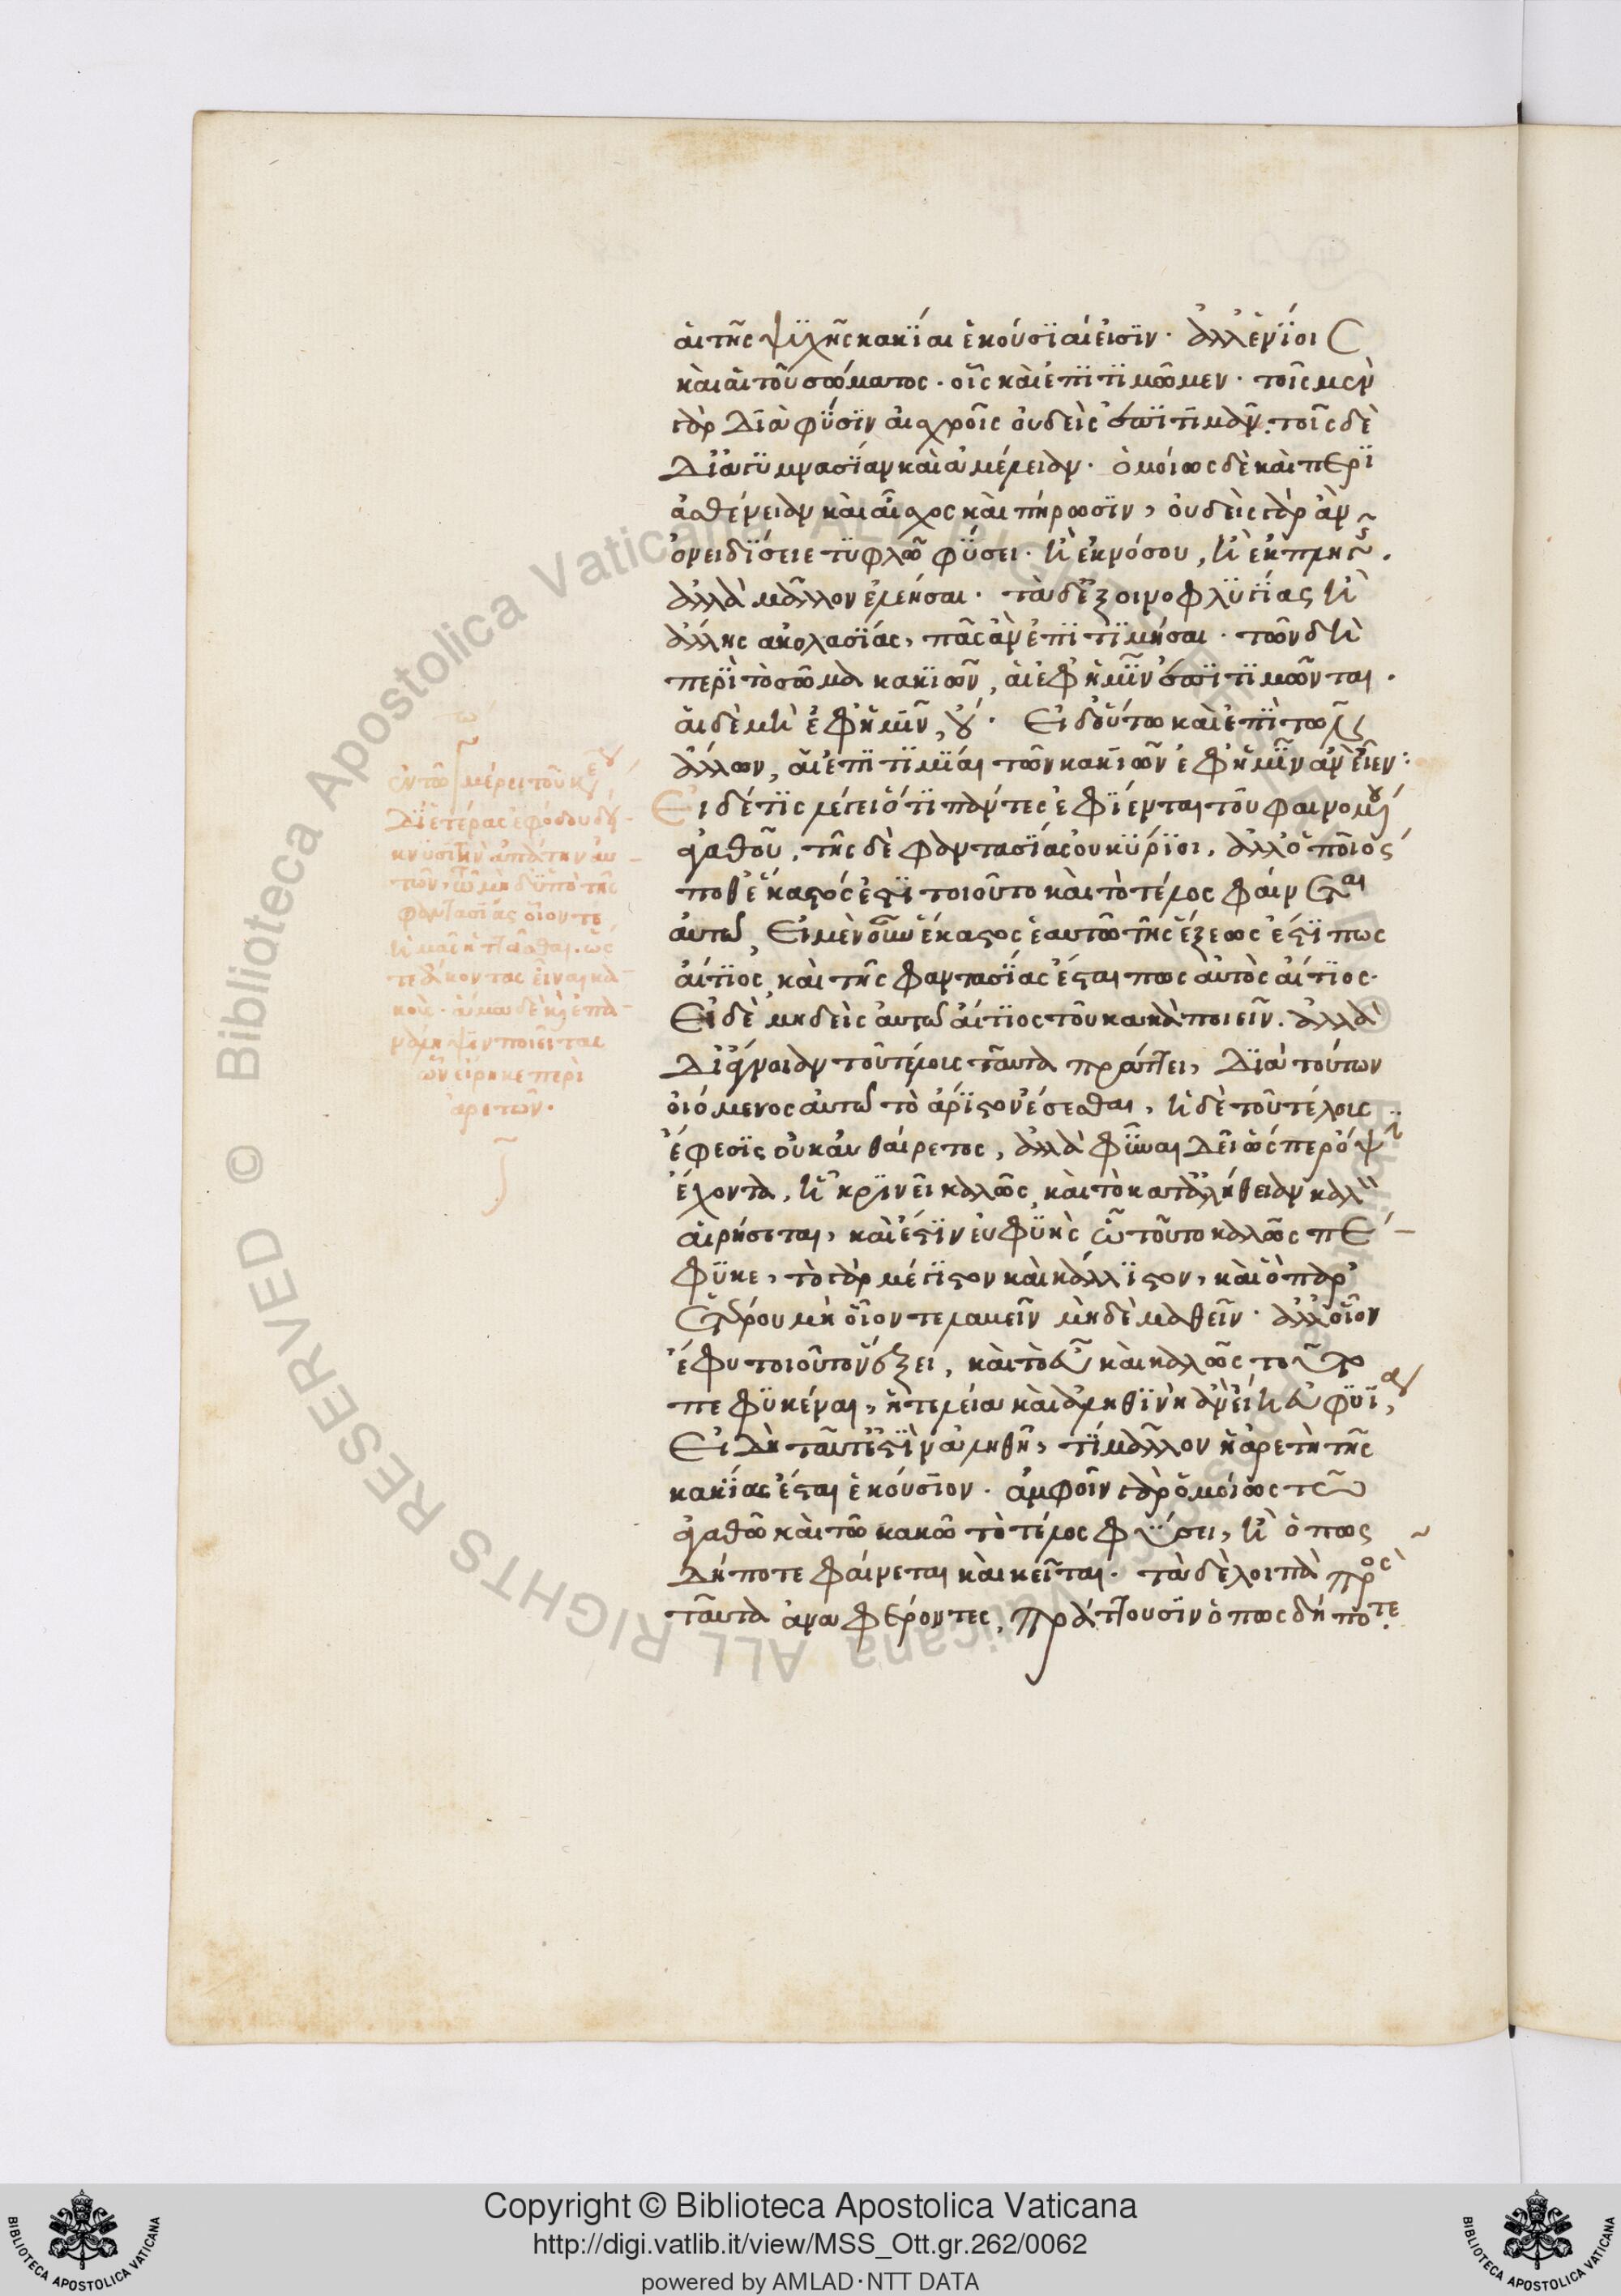 αἱ τῆς ψυχῆς κακίαι ἑκούσιαί εἰσιν· ἀλλ' ἐνίοις
καὶ αἱ τοῦ σώματος· οἷς καὶ ἐπιτιμῶμεν· τοῖς μὲν
γὰρ διὰ φύσιν αἰσχροῖς οὐδεὶς ἐπιτιμᾶν· τοῖς δὲ
δι' ἀγυμνασίαν καὶ ἀμέλειαν· ὁμοίως δὲ καὶ περὶ
ἀσθένειαν καὶ αἶσχος καὶ πήρωσιν, οὐδεὶς γὰρ ἂν
ὀνειδίσειε τυφλῶ φύσει· ἢ ἐκ νόσου, ἢ ἐκ πληγῆς.
ἀλλὰ μᾶλλον ἐλεήσαι· τὰ δ' ἐξ οἰνοφλυγίας ἢ
ἄλλης ἀκολασίας, πᾶς ἂν ἐπιτιμήσαι· τῶν δὴ
περὶ τὸ σῶμα κακιῶν, αἱ ἐφ' ἡμῖν ἐπιτιμῶνται·
αἱ δὲ μὴ ἐφ' ἡμῖν, οὔ· Εἰ δ' οὕτω καὶ ἐπὶ τῶν
ἄλλων, αἱ ἐπιτιμίαι τῶν κακιῶν ἐφ' ἡμῖν ἂν εἶεν:
Εἰ δέ τις λέγει ὅτι πάντες ἐφίενται τοῦ φαινομένου
ἀγαθοῦ, τῆς δὲ φαντασίας οὐ κύριοι, ἀλλ' ὁποῖός
ποθ' ἕκαστός ἐστι τοιοῦτο καὶ τὸ τέλος φαίνεται
αὐτῶ, Εἰ μὲν οὖν ἕκαστος ἑαυτῶ τῆς ἕξεώς ἐστί πως
αἴτιος, καὶ τῆς φαντασίας ἔσται πως αὐτὸς αἴτιος·
Εἰ δὲ μηδεὶς αὐτῶ αἴτιος τοῦ κακὰ ποιεῖν. ἀλλὰ
δι' ἄγνοιαν τοῦ τέλους ταῦτα πράττει, διὰ τούτων
οἰόμενος αὐτῶ τὸ ἄριστον ἔσεσθαι, ἡ δὲ τοῦ τέλους
ἔφεσις οὐκ αὐθαίρετος, ἀλλὰ φῦναι δεῖ ὥσπερ ὄψιν
ἔχοντα, ἧ κρινεῖ καλῶς, καὶ τὸ κατ' ἀλήθειαν καλὸν
αἱρήσεται, καὶ ἔστιν εὐφυὴς ὧ τοῦτο καλῶς πέ-
φυκε, τὸ γὰρ μέγιστον καὶ κάλλιστον, καὶ ὃ παρ'
ἑτέρου μὴ οἷόν τε λαβεῖν μηδὲ μαθεῖν· ἀλλ' οἷον
ἔφυ τοιοῦτον ἕξει, καὶ τὸ εὖ καὶ καλῶς τοῦτο
πεφυκέναι, ἡ τελεία καὶ ἀληθινὴ ἂν εἴη εὐφυία,
Εἰ δὴ ταῦτ' ἐστὶν ἀληθῆ, τί μᾶλλον ἡ ἀρετὴ τῆς
κακίας ἔσται ἑκούσιον· ἀμφοῖν γὰρ ὁμοίως τῶ
ἀγαθῶ καὶ τῶ κακῶ τὸ τέλος φύσει, ἢ ὅπως
δήποτε φαίνεται καὶ κεῖται· τὰ δὲ λοιπὰ πρὸς
ταῦτα ἀναφέροντες, πράττουσιν ὅπως δήποτε.
ἐν τῶ μέρει τούτω
Δι' ἑτέρας ἐφόδου δει-
κνύσι τὴν ἀπάτην αὐ-
τῶν, ὧ μὴ δ' ὑπὸ τῆς
φαντασίας οἷόν τε
ἢ μα ἡττᾶσθαι. ὥς
τε ἄκοντας εἶναι κα-
κούς· ἅμα δὲ καὶ ἐπα-
νάληψιν ποιεῖται
ὧν εἴρηκε περὶ
ἀρετῶν·
Copyright © Biblioteca Apostolica Vaticana
http://digi.vatlib.it/view/MSS_Ott.gr.262/0062
powered by AMLAD·NTT DATA
BIBLIOTECA APOSTOLICA VATICANA
BIBLIOTECA APOSTOLICA VATICANA
© Biblioteca Apostolica Vaticana ALL RIGHTS RESERVED